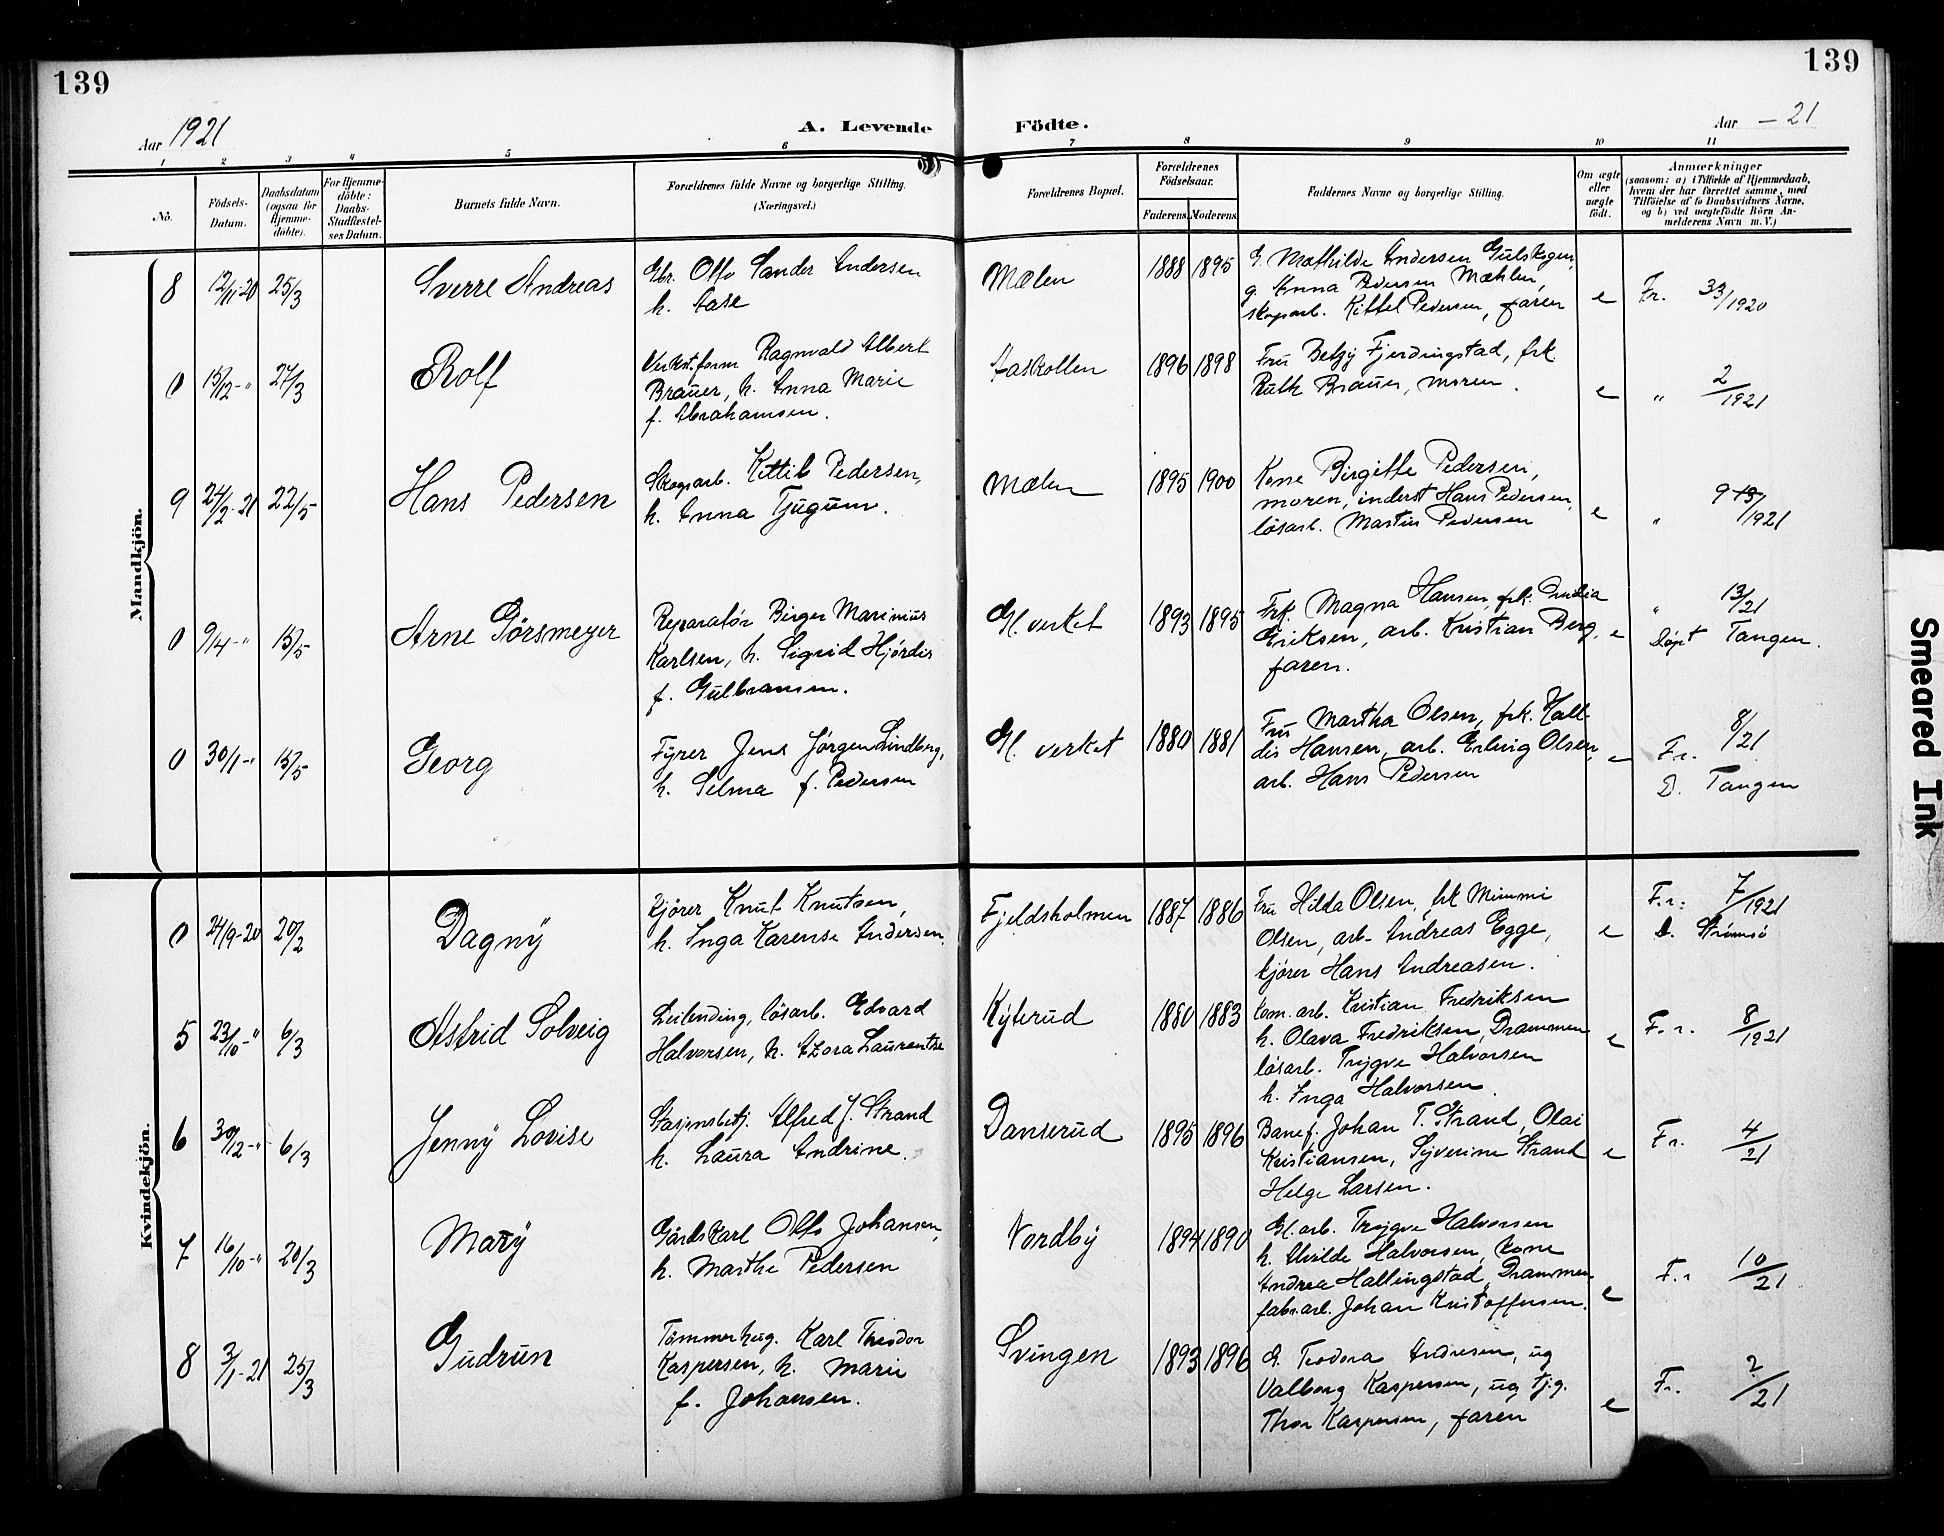 139
139
Aar 1921
A. Levende Födte.
Aar – 21
1 2 3 4 5 6 7 8 9 10 11
No.
Födsels-Datum.
Daabsdatum (ogsaa for Hjemme-döbte).
For Hjemme-döbte: Daabs-Stadfæstel-ses Datum.
Barnets fulde Navn.
Forældrenes fulde Navne og borgerlige Stilling. (Næringsvei.)
Forældrenes Bopæl.
Forældrenes Födselsaar.
Faderens. Moderens.
Faddernes Navne og borgerlige Stilling.
Om ægte eller uægte födt.
Anmærkninger
(saasom: a) i Tilfælde af Hjemmedaab,
hvem der har forrettet samme, med
Tilföielse af to Daabsvidners Navne,
og b) ved uægtefödte Börn An-
melderens Navn m. V.)
Mandkjön.
8 12/11-20 25/3 Sverre Andreas
Gbr. Otto Sander Andersen
h. Aase
Mælen 1888 1895
G. Mathilde Andersen Gulskogen,
g. Anna Pedersen Mæhlen,
skogsarb. Kittel Pedersen, faren
e Fr. 33/1920
0 15/12-" 27/3 Rolf
Verkst.form Ragnvald Albert
Braüer, h. Anna Marie
f. Abrahamsen.
Aaskollen 1896 1898
Fru Betzy Fjerdingstad, frk
Ruth Braüer, moren.
e " 2/1921
9 24/2-21 22/5 Hans Pedersen
Skogsarb. Kittil Pedersen,
h. Anna Tjugum.
Mælen 1895 1900
Kone Birgitte Pedersen,
moren, inderst Hans Pedersen,
løsarb. Martin Pedersen
e " 9 /1921
0 9/4-" 15/5 Arne Sörsmeyer
Reparatør Birger Marinius
Karlsen, h. Sigrid Hjørdis
f. Gulbransen.
Gl. verket 1893 1895
Frk. Magna Hansen, frk.
Eriksen, arb. Kristian Berg,
faren.
e " 13/21
Døpt Tangen.
0 30/1-" 15/5 Georg
Fyrer Jens Jørgen Lindberg,
h. Selma f. Pedersen
Gl. verket 1880 1881
Fru Martha Olsen, frk. Hall-
dis Hansen, arb. Erling Olsen,
arb. Hans Pedersen
e Fr. 8/21
D. Tangen
Kvindekjön.
0 24/9-20 20/2 Dagny
Kjører Knut Knutsen,
h. Inga Karense Andersen.
Fjeldsholmen 1887 1886
Fru Hilda Olsen, frk Mimmi
Olsen, arb. Andreas Egge,
kjører Hans Andreasen.
e F.r. 7/1921
D. Strømsø
5 23/10-" 6/3 Astrid Solveig
Leilending, løsarb. Edvard
Halvorsen, h. Azora Laurentse
Kyterud 1880 1883
Kom. arb. Kristian Fredriksen
h. Olava Fredriksen, Drammen
løsarb. Trygve Halvorsen
h. Inga Halvorsen.
e F.r. 8/1921
6 30/12-" 6/3 Jenny Lovise
Stasjonsbetj. Alfred J. Strand
h. Laura Andrine.
Danserud 1895 1896
Banef. Johan T. Strand, Olai
Kristiansen, Syverine Strand
Helge Larsen.
e Fr. 4/21
7 16/10-" 20/3 Mary
Gårdskarl Otto Johansen,
h. Marthe Pedersen
Nordby 1894 1890
Gl. arb. Trygve Halvorsen
h. Alvilde Halvorsen, kone
Andrea Hallingstad, Drammen
fabr.arb. Johan Kristoffersen.
e F.r 10/21
8 3/1-21 25/3 Gudrun
Tømmerhug. Karl Theodor
Kaspersen, h. Marie
f. Johansen.
Svingen 1893 1896
G. Teodora Andresen, ug
Valborg Kaspersen, ug tj.g.
Thor Kaspersen, faren
e Fr. 2/21
Smeared Ink